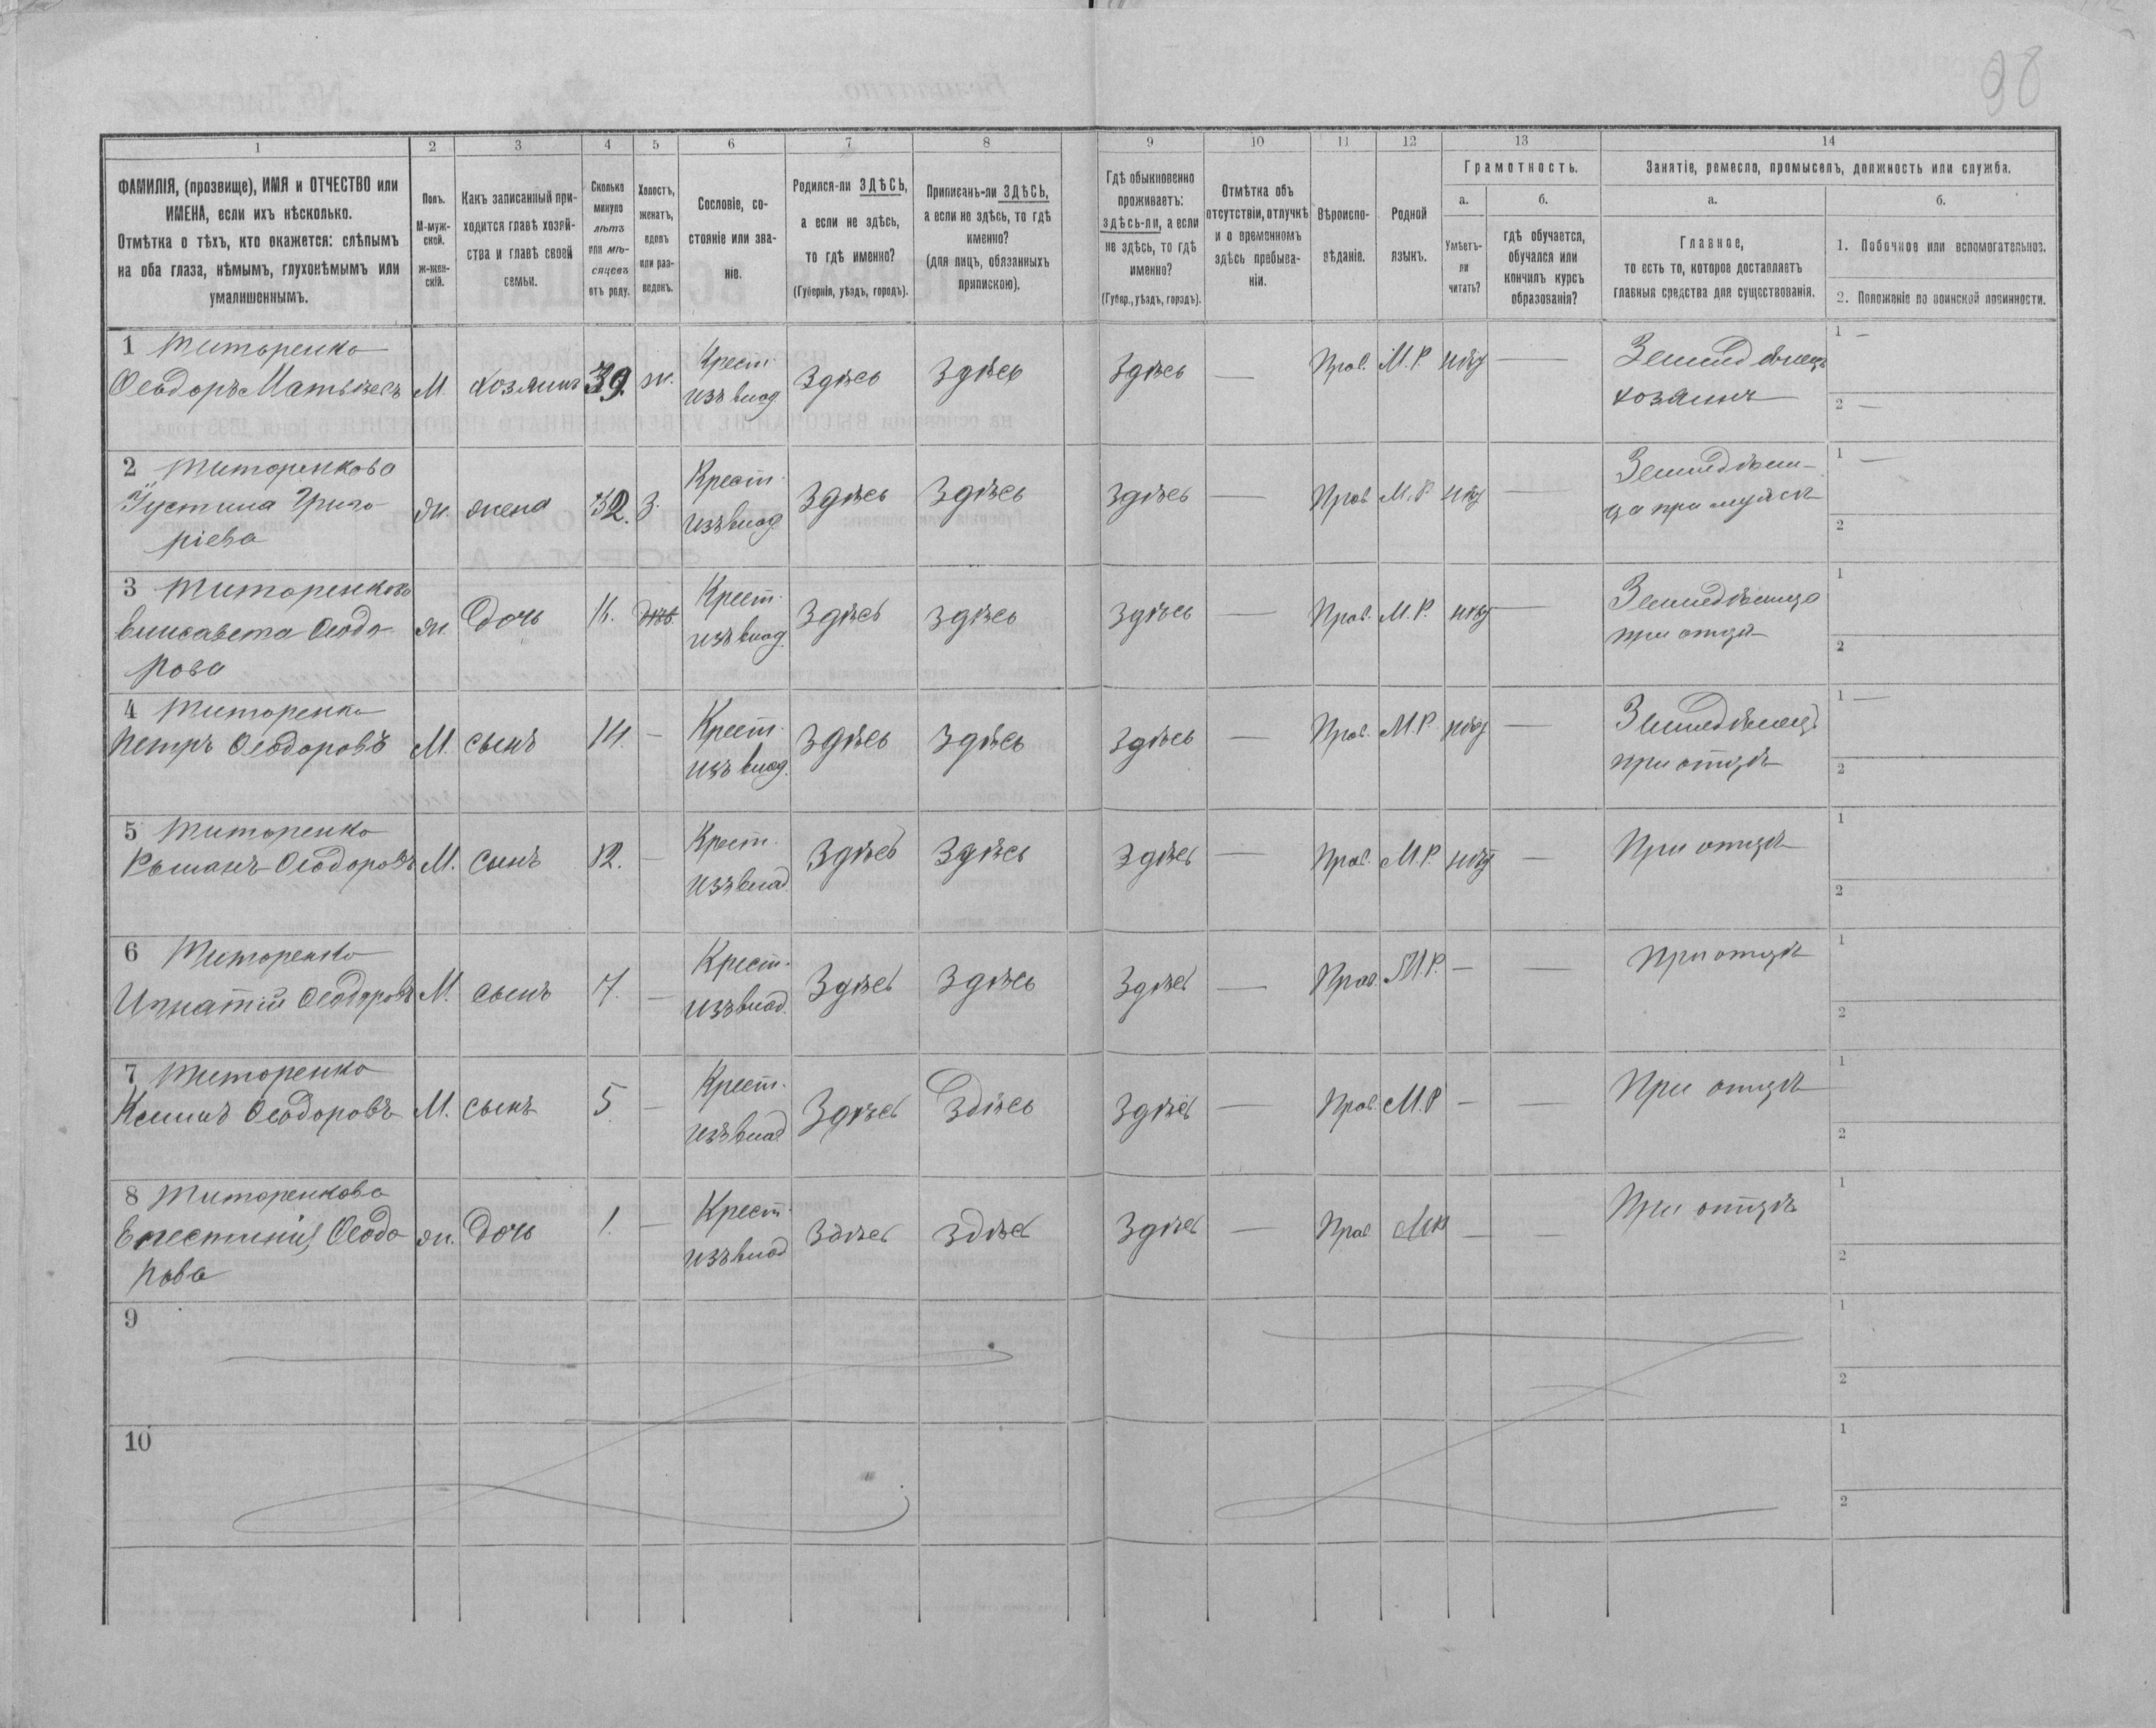 98
1 2 3 4 5 6 7 8 9 10 11 12 13 14
ФАМИЛІЯ, (прозвище), ИМЯ и ОТЧЕСТВО или
ИМЕНА, если ихъ нѣсколько.
Отмѣтка о тѣхъ, кто окажется: слѣпымъ
на оба глаза, нѣмымъ, глухонѣмымъ или
умалишеннымъ.
Полъ.
М-муж-
ской.
Ж-жен-
скій.
Какъ записанный при-
ходится главѣ хозяй-
ства и главѣ своей
семьи.
Сколько
минуло
лѣтъ
или мѣ-
сяцевъ
отъ роду.
Холостъ,
женатъ,
вдовъ
или раз-
веденъ.
Сословіе, со-
стояніе или зва-
ніе.
Родился-ли ЗДѢСЬ,
а если не здѣсь,
то гдѣ именно?
(Губернія, уѣздъ, городъ).
Приписанъ-ли ЗДѢСЬ,
а если не здѣсь, то гдѣ
именно?
(для лицъ, обязанныхъ
припискою).
Гдѣ обыкновенно
проживаетъ:
здѣсь-ли, а если
не здѣсь, то гдѣ
именно?
(Губер., уѣздъ, городъ).
Отмѣтка объ
отсутствіи, отлучкѣ
и о временномъ
здѣсь пребыва-
ніи.
Вѣроиспо-
вѣданіе.
Родной
языкъ.
Грамотность.
а.
Умѣетъ-
ли
читать?
б.
гдѣ обучается,
обучался или
кончилъ курсъ
образованія?
Занятіе, ремесло, промыселъ, должность или служба.
а.
Главное,
то есть то, которое доставляетъ
главныя средства для существованія.
б.
1. Побочное или вспомогательное.
2. Положеніе по воинской повинности.
1 Титоренко
Ѳеодоръ Матвѣевъ М. хозяинъ 39. ж. Крест. изъ влад. Здѣсь Здѣсь Здѣсь — Прав. М.Р. нѣт — Земледѣлецъ
хозяинъ
1 —
2 —
2 Титоренкова
Іустина Григо-
ріева ж. жена 32. З. Крест. изъ влад. Здѣсь Здѣсь Здѣсь — Прав. М.Р. нѣт — Земледѣли-
ца при мужѣ
1 —
2
3 Титоренкова
Елисавета Ѳеодо-
рова ж. Дочь 16. Крест. изъ влад. Здѣсь Здѣсь Здѣсь — Прав. М.Р. нѣт — Земледѣлица
при отцѣ
1
2
4 Титоренко
Петръ Ѳеодоровъ М. сынъ 14. — Крест. изъ влад. Здѣсь Здѣсь Здѣсь — Прав. М.Р. нѣт — Земледѣлецъ
при отцѣ
1 —
2
5 Титоренко
Романъ Ѳеодоровъ М. сынъ 12. — Крест. изъ влад. Здѣсь Здѣсь Здѣсь — Прав. М.Р. нѣт — При отцѣ
1
2
6 Титоренко
Игнатій Ѳеодоровъ М. сынъ 7. — Крест. изъ влад. Здѣсь Здѣсь Здѣсь — Прав. М.Р. — — При отцѣ
1
2
7 Титоренко
Ѳеодоровъ М. сынъ 5 — Крест. изъ влад. Здѣсь Здѣсь Здѣсь — Прав. М.Р — — При отцѣ
1
2
8 Титоренкова
Ѳеодо-
рова ж. Дочь 1. — Крест. изъ влад Здѣсь Здѣсь Здѣсь — Прав. МР — — При отцѣ
1
2
9
1
2
10
1
2